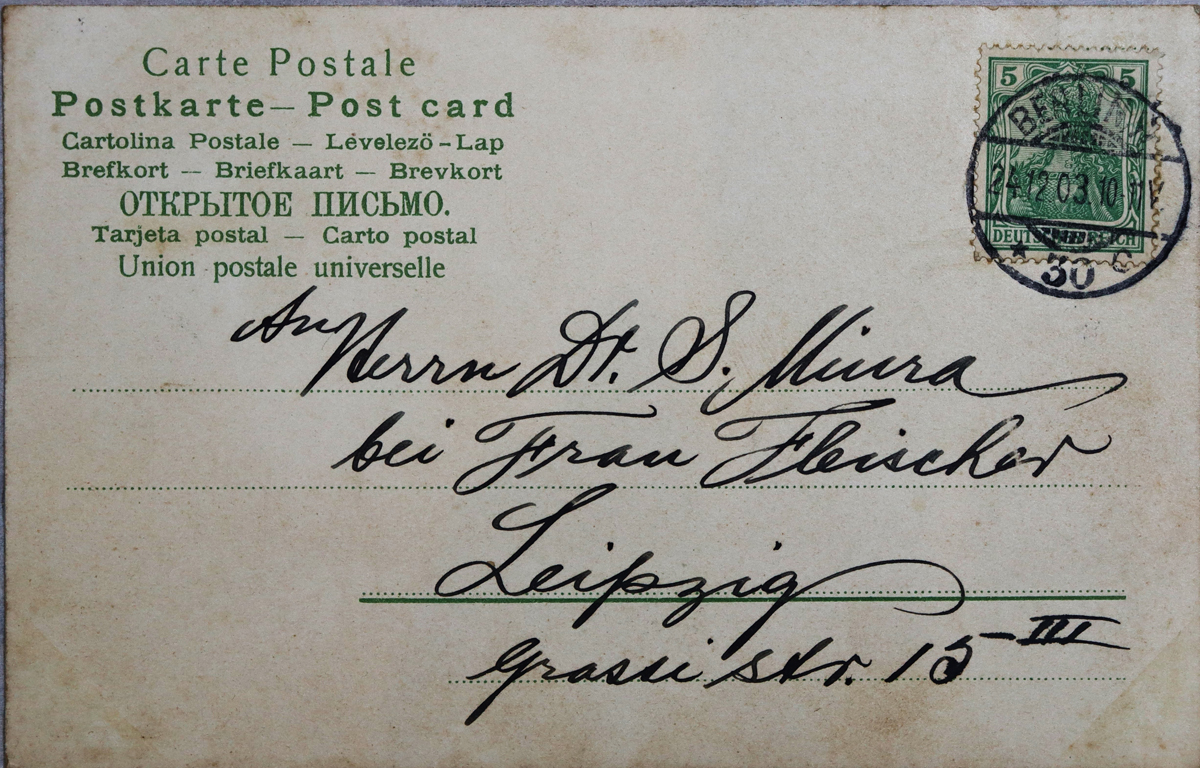 Carte Postale
Postkarte — Post card
Cartolina Postale — Levelezö - Lap
Brefkort — Briefkaart — Brevkort
ОТКРЫТОЕ ПИСЬМО.
Tarjeta postal — Carto postal
Union postale universelle
5 5
24.12.03.10-11V
DEUTSCHES REICH
* 30 C
An Herrn Dr. S. Miura
bei Frau Fleischer
Leipzig
Grassi str. 15 III